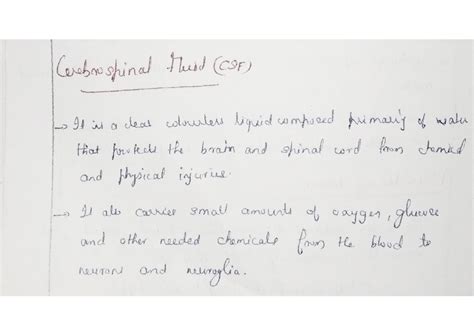 Cerebrospinal Fluid (CSF)
→ It is a clear colourless liquid composed primarily of water
that protects the brain and spinal cord from chemical
and physical injuries.
→ It also carries small amounts of oxygen, glucose
and other needed chemicals from the blood to
neurons and neuroglia.